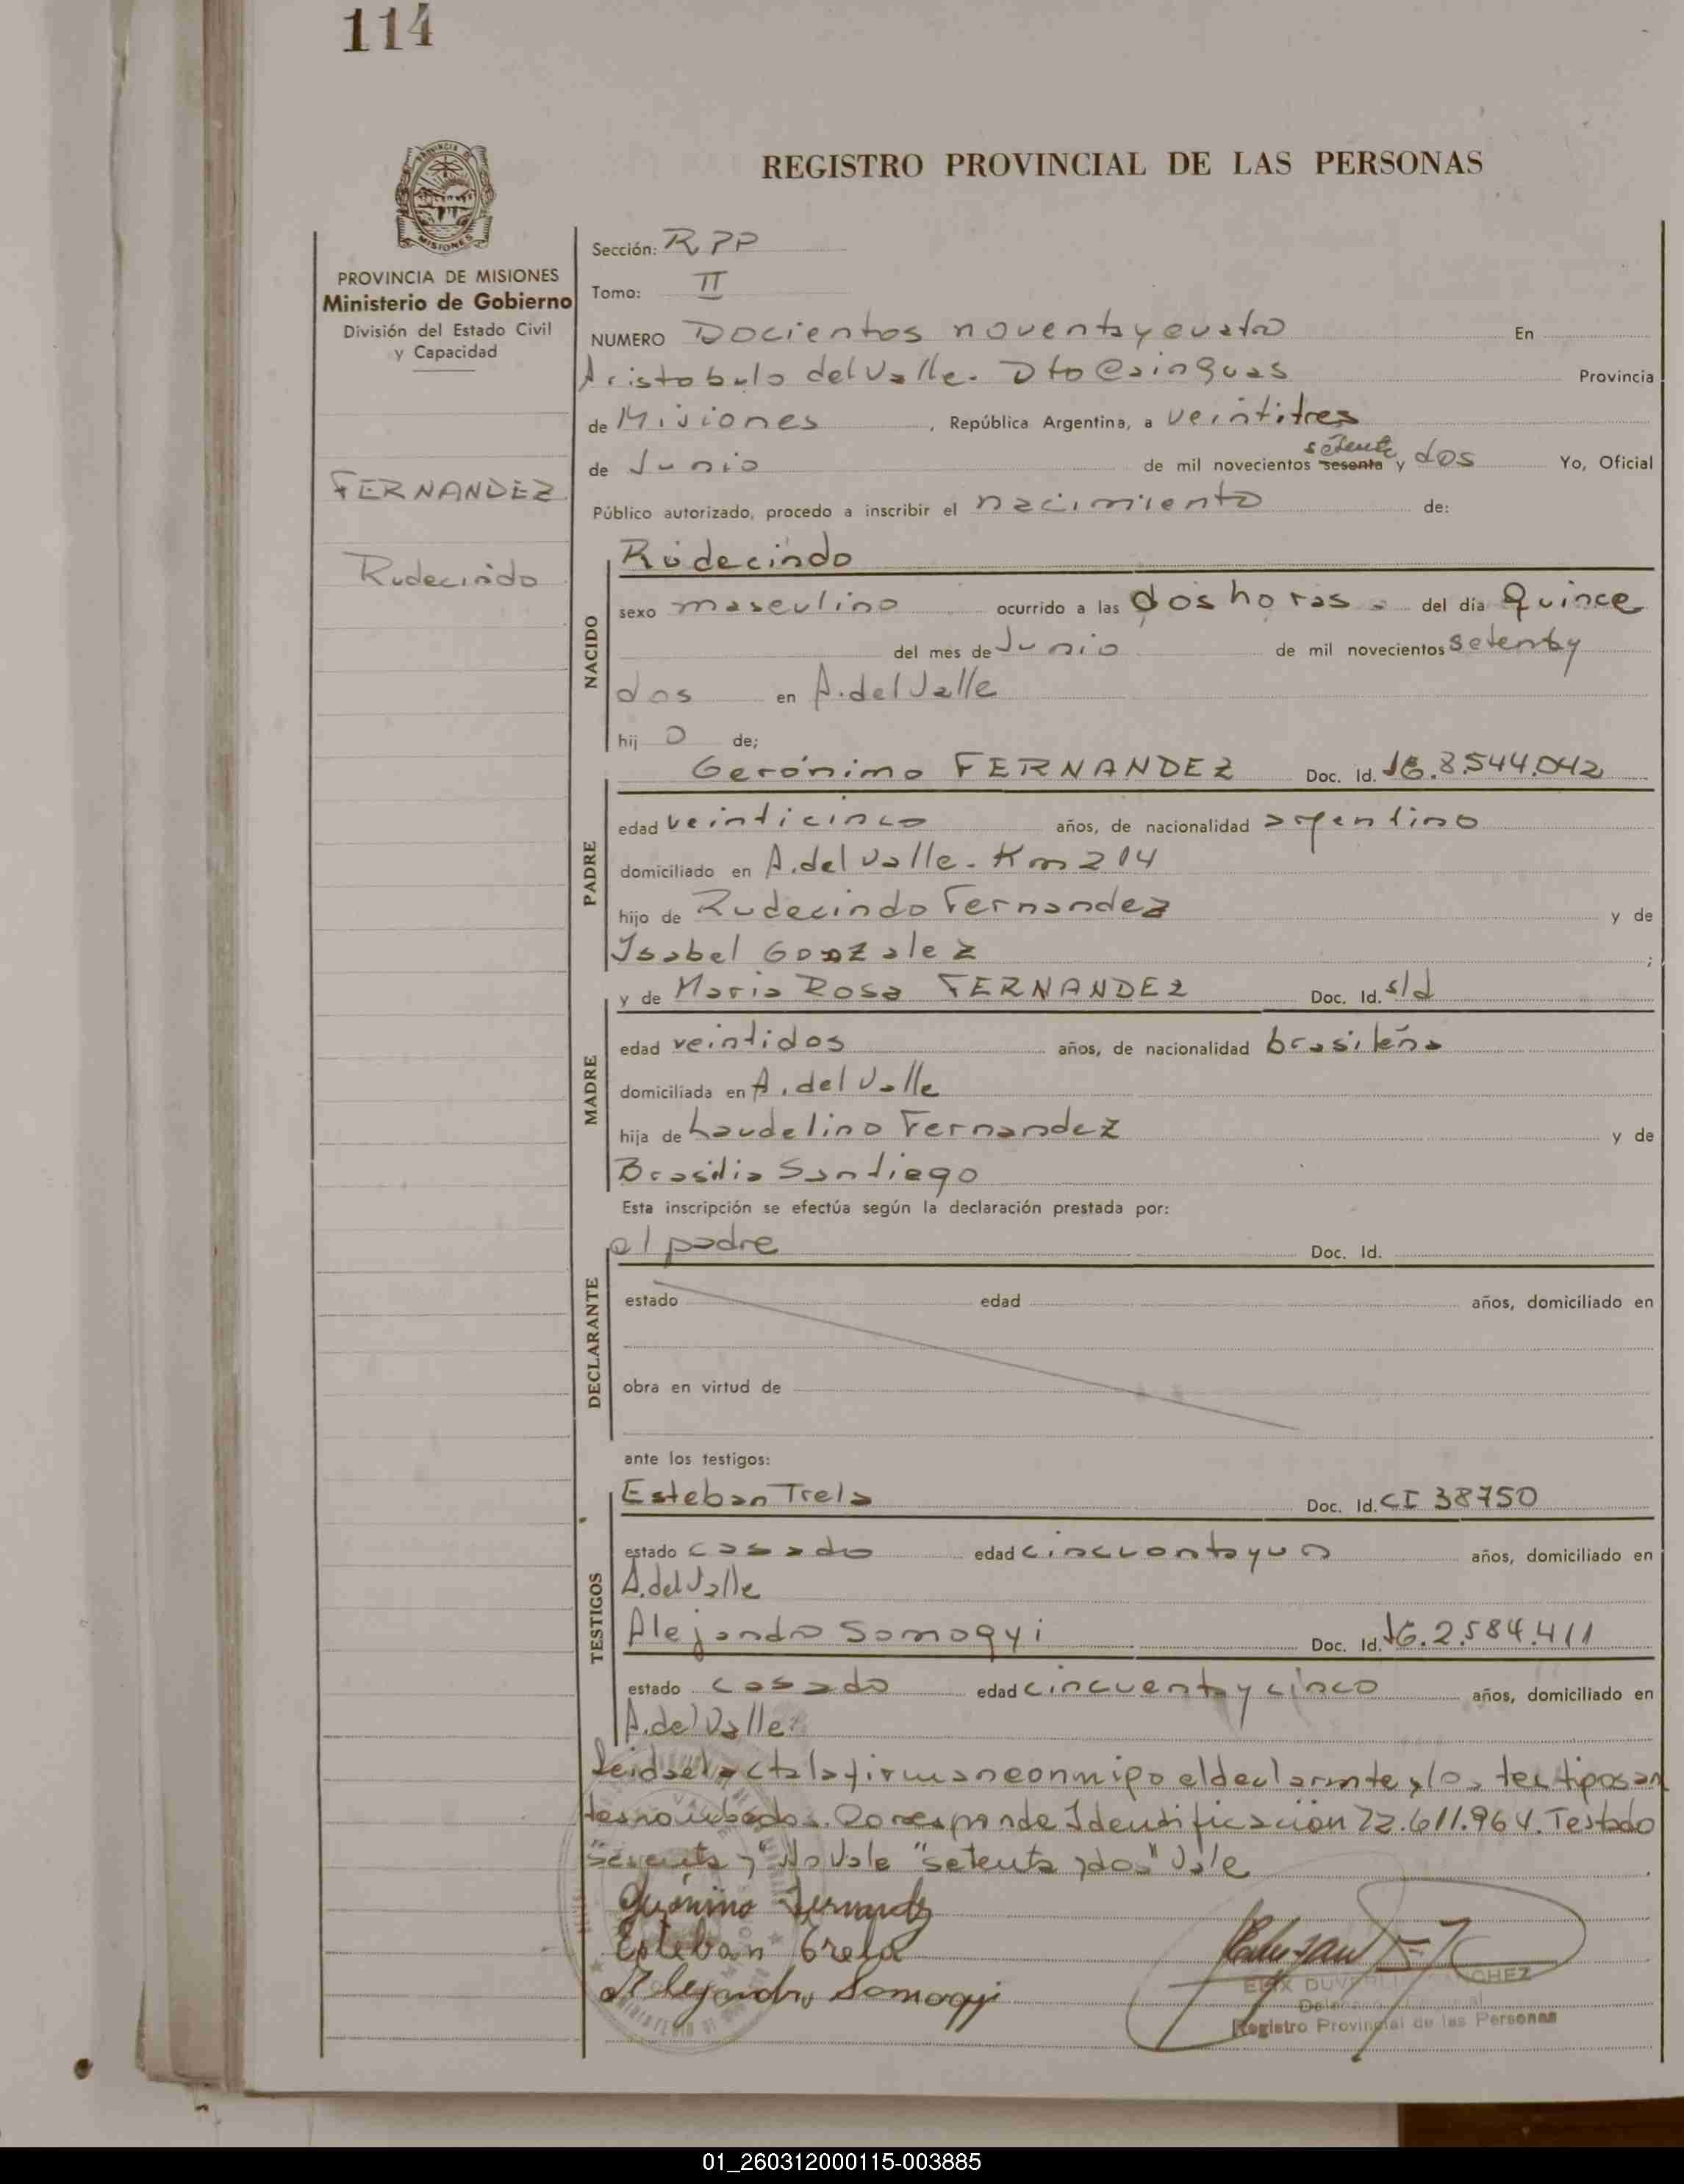 114
PROVINCIA DE
MISIONES
REGISTRO PROVINCIAL DE LAS PERSONAS
PROVINCIA DE MISIONES
Ministerio de Gobierno
División del Estado Civil
y Capacidad
FERNANDEZ
Rudecindo
Sección: RPP
Tomo: II
NUMERO Docientos noventa y cuatro En
Aristobulo del Valle. Dto Cainguas Provincia
de Misiones, República Argentina, a veintitres
de Junio de mil novecientos sesenta setenta y dos Yo, Oficial
Público autorizado, procedo a inscribir el nacimiento de:
NACIDO
Rudecindo
sexo masculino ocurrido a las dos horas. del día Quince
del mes de Junio de mil novecientos setenta y
dos en A. del Valle
hij o de;
PADRE
Gerónimo FERNANDEZ Doc. Id. 8.544.042
edad veinticinco años, de nacionalidad argentino
domiciliado en A. del Valle - Km 214
hijo de Rudecindo Fernandez y de
Isabel Gonzalez ;
MADRE
y de Maria Rosa FERNANDEZ Doc. Id. s/d
edad veintidos años, de nacionalidad brasileña
domiciliada en A. del Valle
hija de Laudelino Fernandez y de
Brasilia Santiego
Esta inscripción se efectúa según la declaración prestada por:
DECLARANTE
el padre Doc. Id.
estado edad años, domiciliado en
obra en virtud de
ante los testigos:
TESTIGOS
Esteban Trela Doc. Id. CI 38750
estado casado edad cincuenta y un años, domiciliado en
A. del Valle
Alejandro Somogyi Doc. Id. 2.584.411
estado casado edad cincuenta y cinco años, domiciliado en
A. del Valle.
Leida el acta la firman conmigo el declarante y los testigos an
tes nombados. Corresponde Identificacion 22.611.964. Testado
"sesenta y" No Vale "setenta y dos" Vale
Gerónimo Fernandez
Esteban Trela
Alejandro Somogyi
Registro Provincial de las Personas
01_260312000115-003885